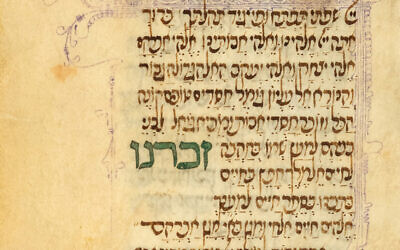 שפתי תפתח ופי יגיד תהלתך ברוך
אתה יי אלהינו ואלהי אבותינו אלהי אברהם
אלהי יצחק ואלהי יעקב האל הגדול הגבור
והנורא אל עליון גומל חסדים טובים קונה
הכל וזוכר חסדי אבות ומביא גואל לבני
בניהם למען שמו באהבה זכרנו
לחיים אל מלך חפץ בחיים
וכתבנו בספר חיים למענך
אלהים חיים אל חי ומגן מלך